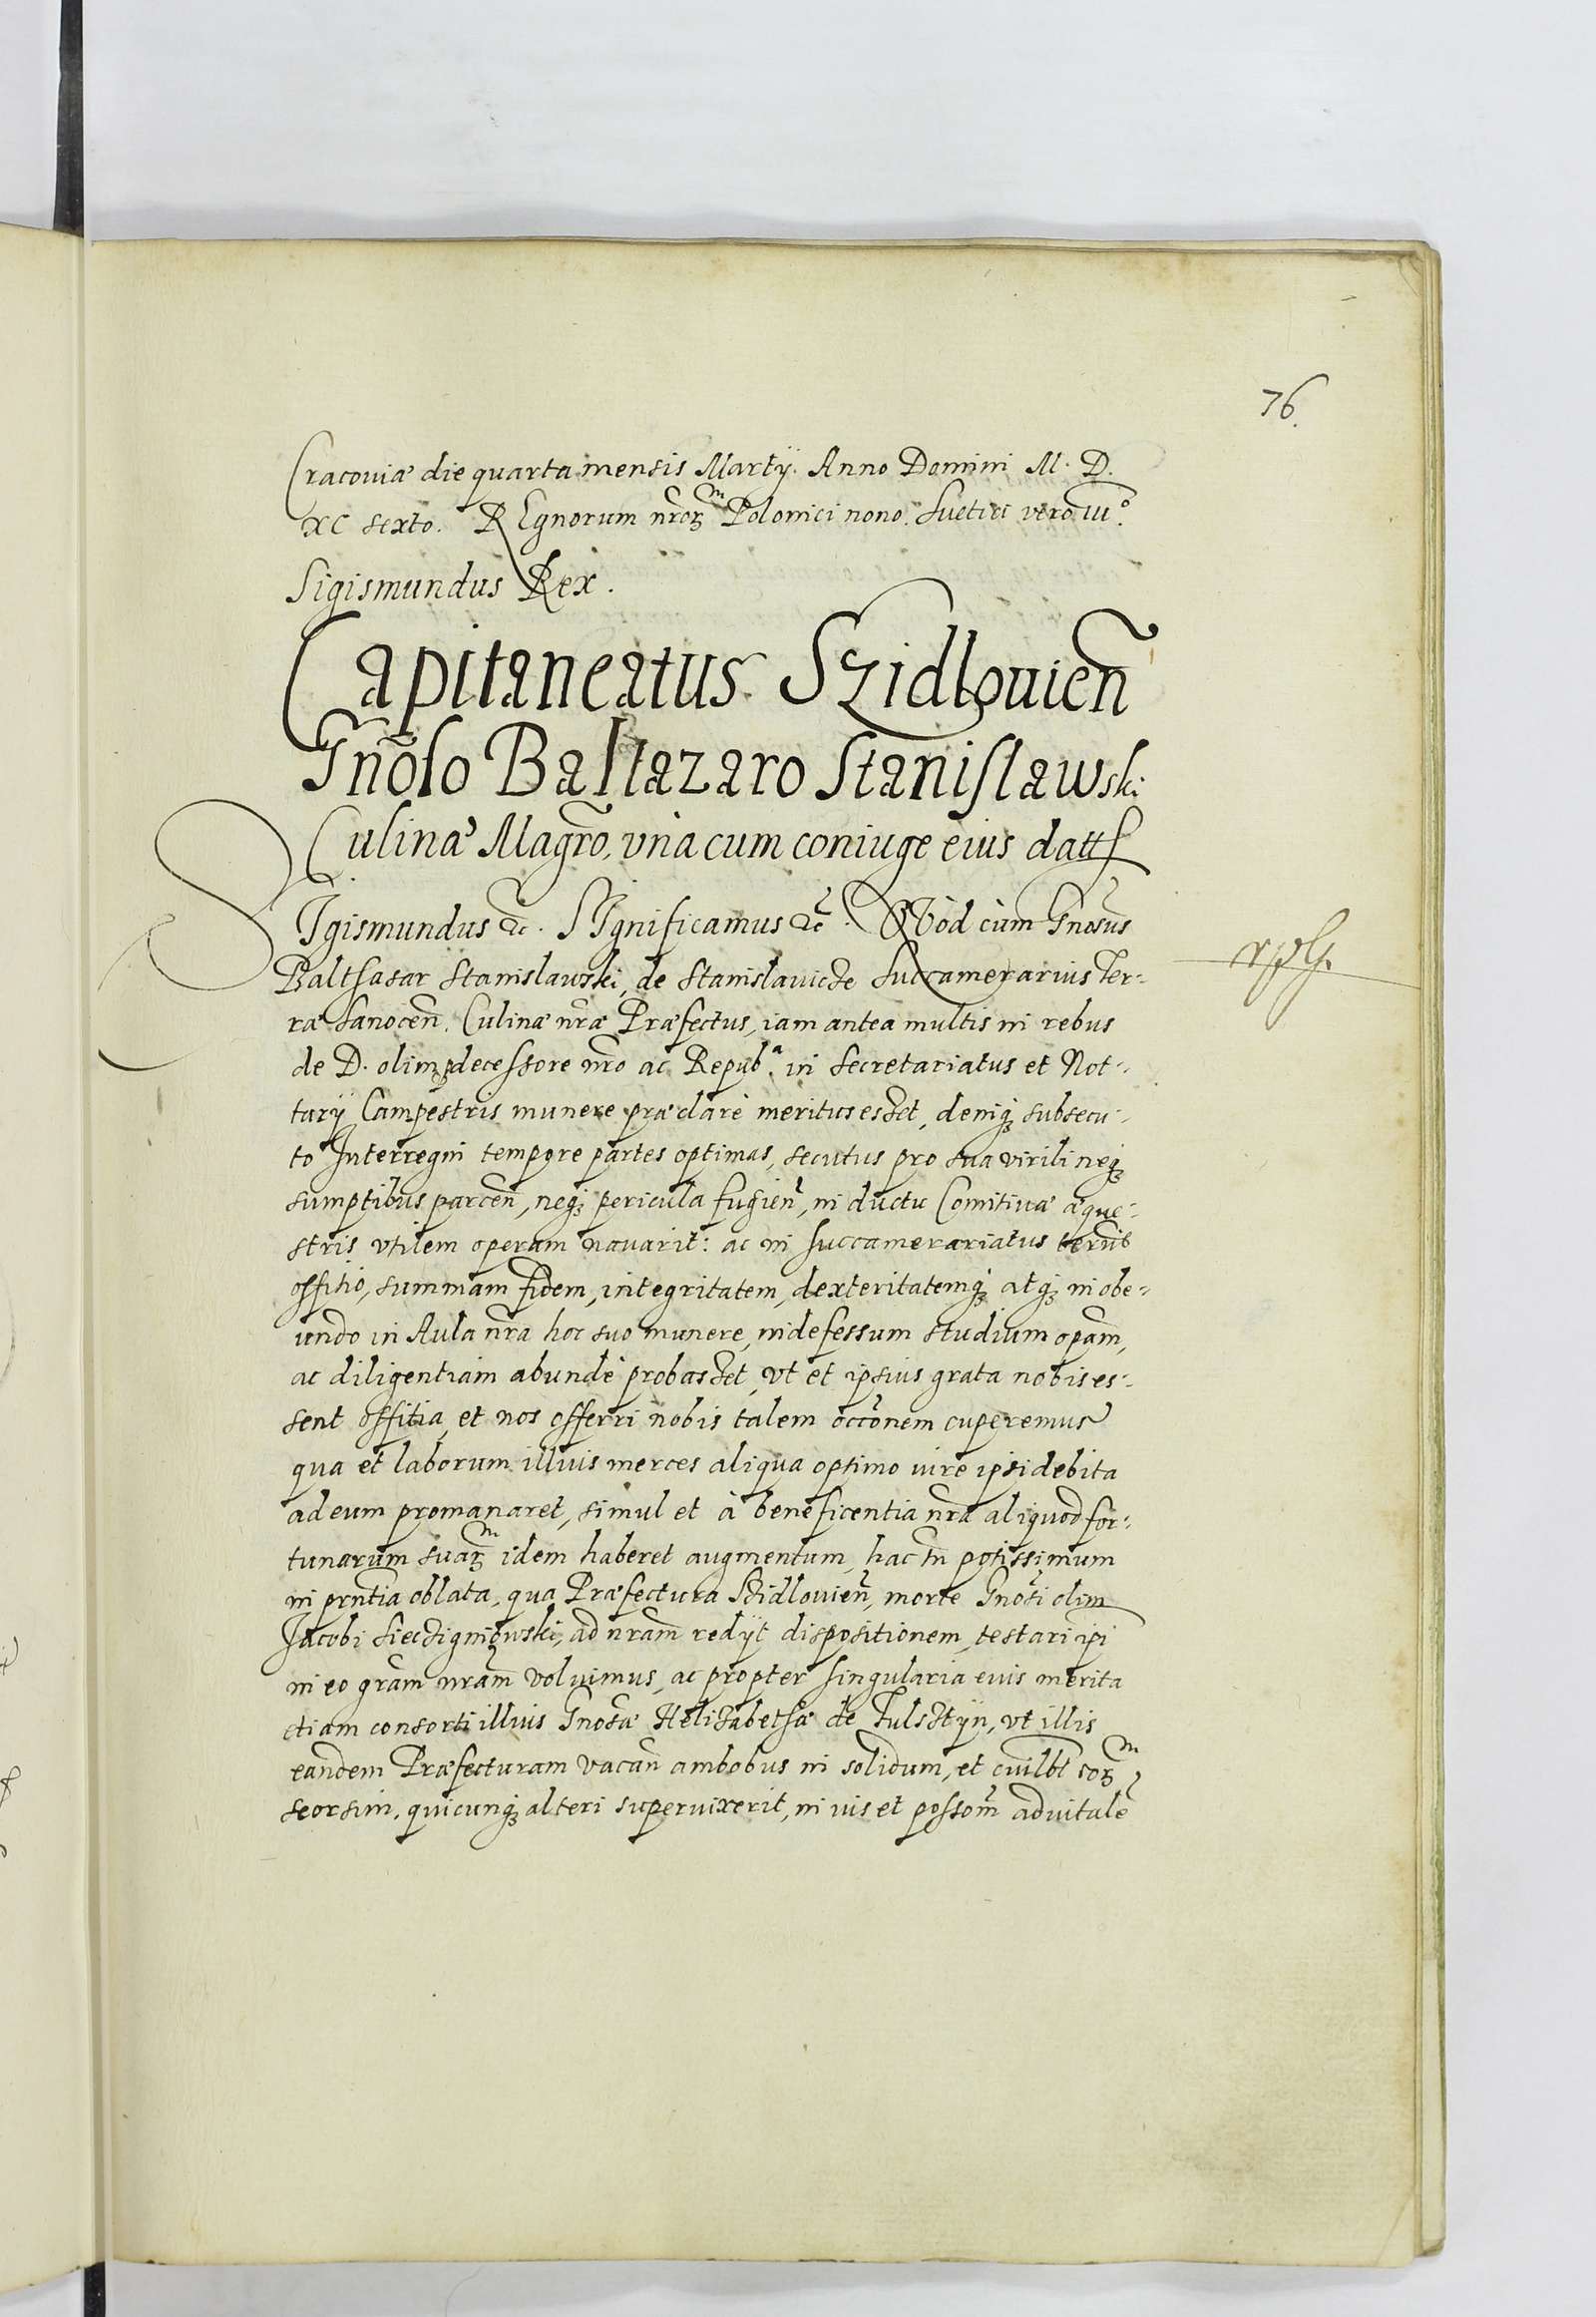 76.
Cracouiæ die quarta mensis Martÿ. Anno Domini M. D.
XC sexto. REgnorum nror̃m Polonici nono. Suetici vero iii°.
Sigismundus Rex.
Capitaneatus Szidlouien̄
Gn̄oso Baltazaro Stanislawski
Culinæ Magr̄o, vna cum coniuge eius datt
SIgismundus &c. SIgnificamus &c. QVòd cùm Gn̄osus
Balthasar Stanislawski, de Stanislauicze Succamerarius Ter-
ræ Sanocen̄. Culinæ nr̄æ Præfectus, iam antea multis in rebus
de D. olim p̄decessore nr̄o ac Repub.ª in Secretariatus et Not-
tarÿ Campestris munere præclarè meritus eszet, deniq₃ subsecu-
to Interregni tempore partes optimas, secutus pro sua virili neq₃
sumptibus parcen̄, neq₃ pericula fugien̄, in ductu Comitiuæ æque-
stris vtilem operam nauarit: ac in succamerariatus
offitio, summam fidem, integritatem, dexteritatemq₃ atq₃ in obe-
undo in Aula nr̄a hoc suo munere, indefessum studium opam̄,
ac diligentiam abundè probaszet, vt et ipsius grata nobis es-
sent offitia, et nos offerri nobis talem occ̄onem cuperemus
qua et laborum illius merces aliqua optimo iure ipsi debita
ad eum promanaret, simul et à beneficentia nr̄a aliquod for-
tunarum suar̃m idem haberet augmentum, hac tn̄ potissimum
in prn̄tia oblata, qua Præfectura Szidlouien̄, morte Gn̄osi olim
Jacobi Sieczigniowski, ad nram̄ redÿt dispositionem, testari ipi
in eo gram̄ nram̄ voluimus, ac propter singularia eius merita
etiam consorti illius Gn̄osæ Helizabethæ de Fulsztÿn, vt illis
eandem Præfecturam vacan̄ ambobus in solidum, et cuilbt̄ eor̃m
seorsim, quicunq₃ alteri superuixerit, in ius et possom̄ aduitalē